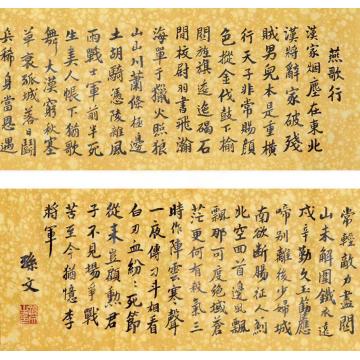 燕歌行
漢家烟塵在東北
漢將辭家破殘
賊男兒本是重橫
行天子非常賜顏
色摐金伐鼓下榆
關旌旗逶迤碣石
間校尉羽書飛瀚
海單于獵火照狼
山山川蕭條極邊
土胡騎憑陵雜風
雨戰士軍前半死
生美人帳下猶歌
舞大漠窮秋塞
草衰孤城落日鬭
兵稀身當恩遇
常輕敵力盡關
山未解圍鐵衣遠
戍辛勤久玉筯應
啼別離後少婦城
南欲斷腸征人薊
北空回首邊風飄
飄那可度絕域蒼
茫更何有殺氣三
時作陣雲寒聲
一夜傳刁斗相看
白刃血紛〻死節
從来豈顧勳君
子不見場爭戰
苦至今猶憶李
將軍
孫文